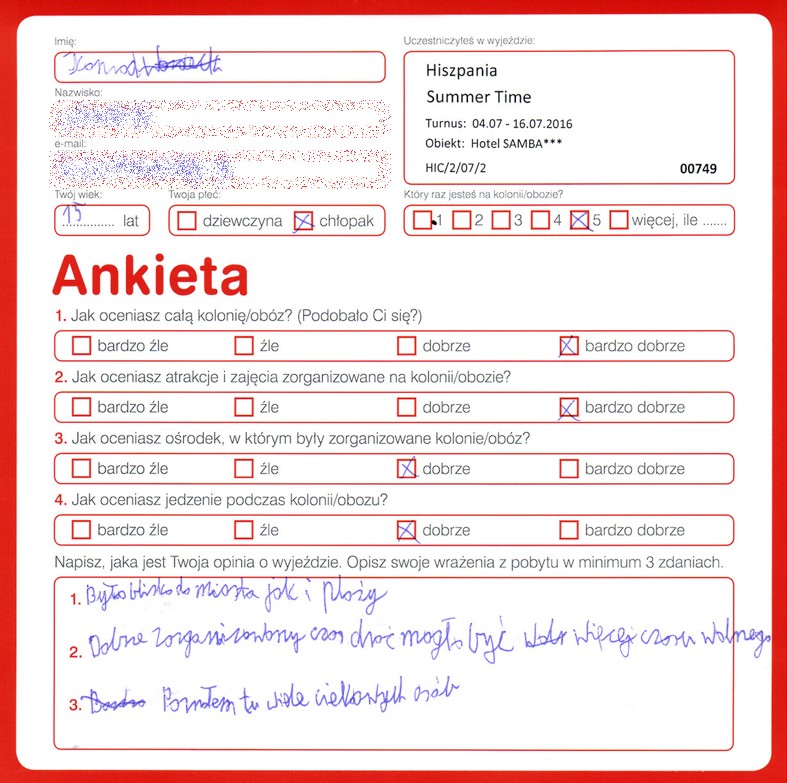 Imię:
Konrad
Uczestniczyłeś w wyjeździe:
Hiszpania
Summer Time
Turnus: 04.07 - 16.07.2016
Obiekt: Hotel SAMBA***
HIC/2/07/2 00749
Nazwisko:
e-mail:
Twój wiek: Twoja płeć: Który raz jesteś na kolonii/obozie?
15 lat dziewczyna chłopak 1 2 3 4 5 więcej, ile .......
Ankieta
1. Jak oceniasz całą kolonię/obóz? (Podobało Ci się?)
bardzo źle źle dobrze bardzo dobrze
2. Jak oceniasz atrakcje i zajęcia zorganizowane na kolonii/obozie?
bardzo źle źle dobrze bardzo dobrze
3. Jak oceniasz ośrodek, w którym były zorganizowane kolonie/obóz?
bardzo źle źle dobrze bardzo dobrze
4. Jak oceniasz jedzenie podczas kolonii/obozu?
bardzo źle źle dobrze bardzo dobrze
Napisz, jaka jest Twoja opinia o wyjeździe. Opisz swoje wrażenia z pobytu w minimum 3 zdaniach.
1. Było blisko do miasta jak i plaży
2. Dobrze zorganizowany czas choć mogło być więcej czasu wolnego
3. Poznałem tu wiele ciekawych osób